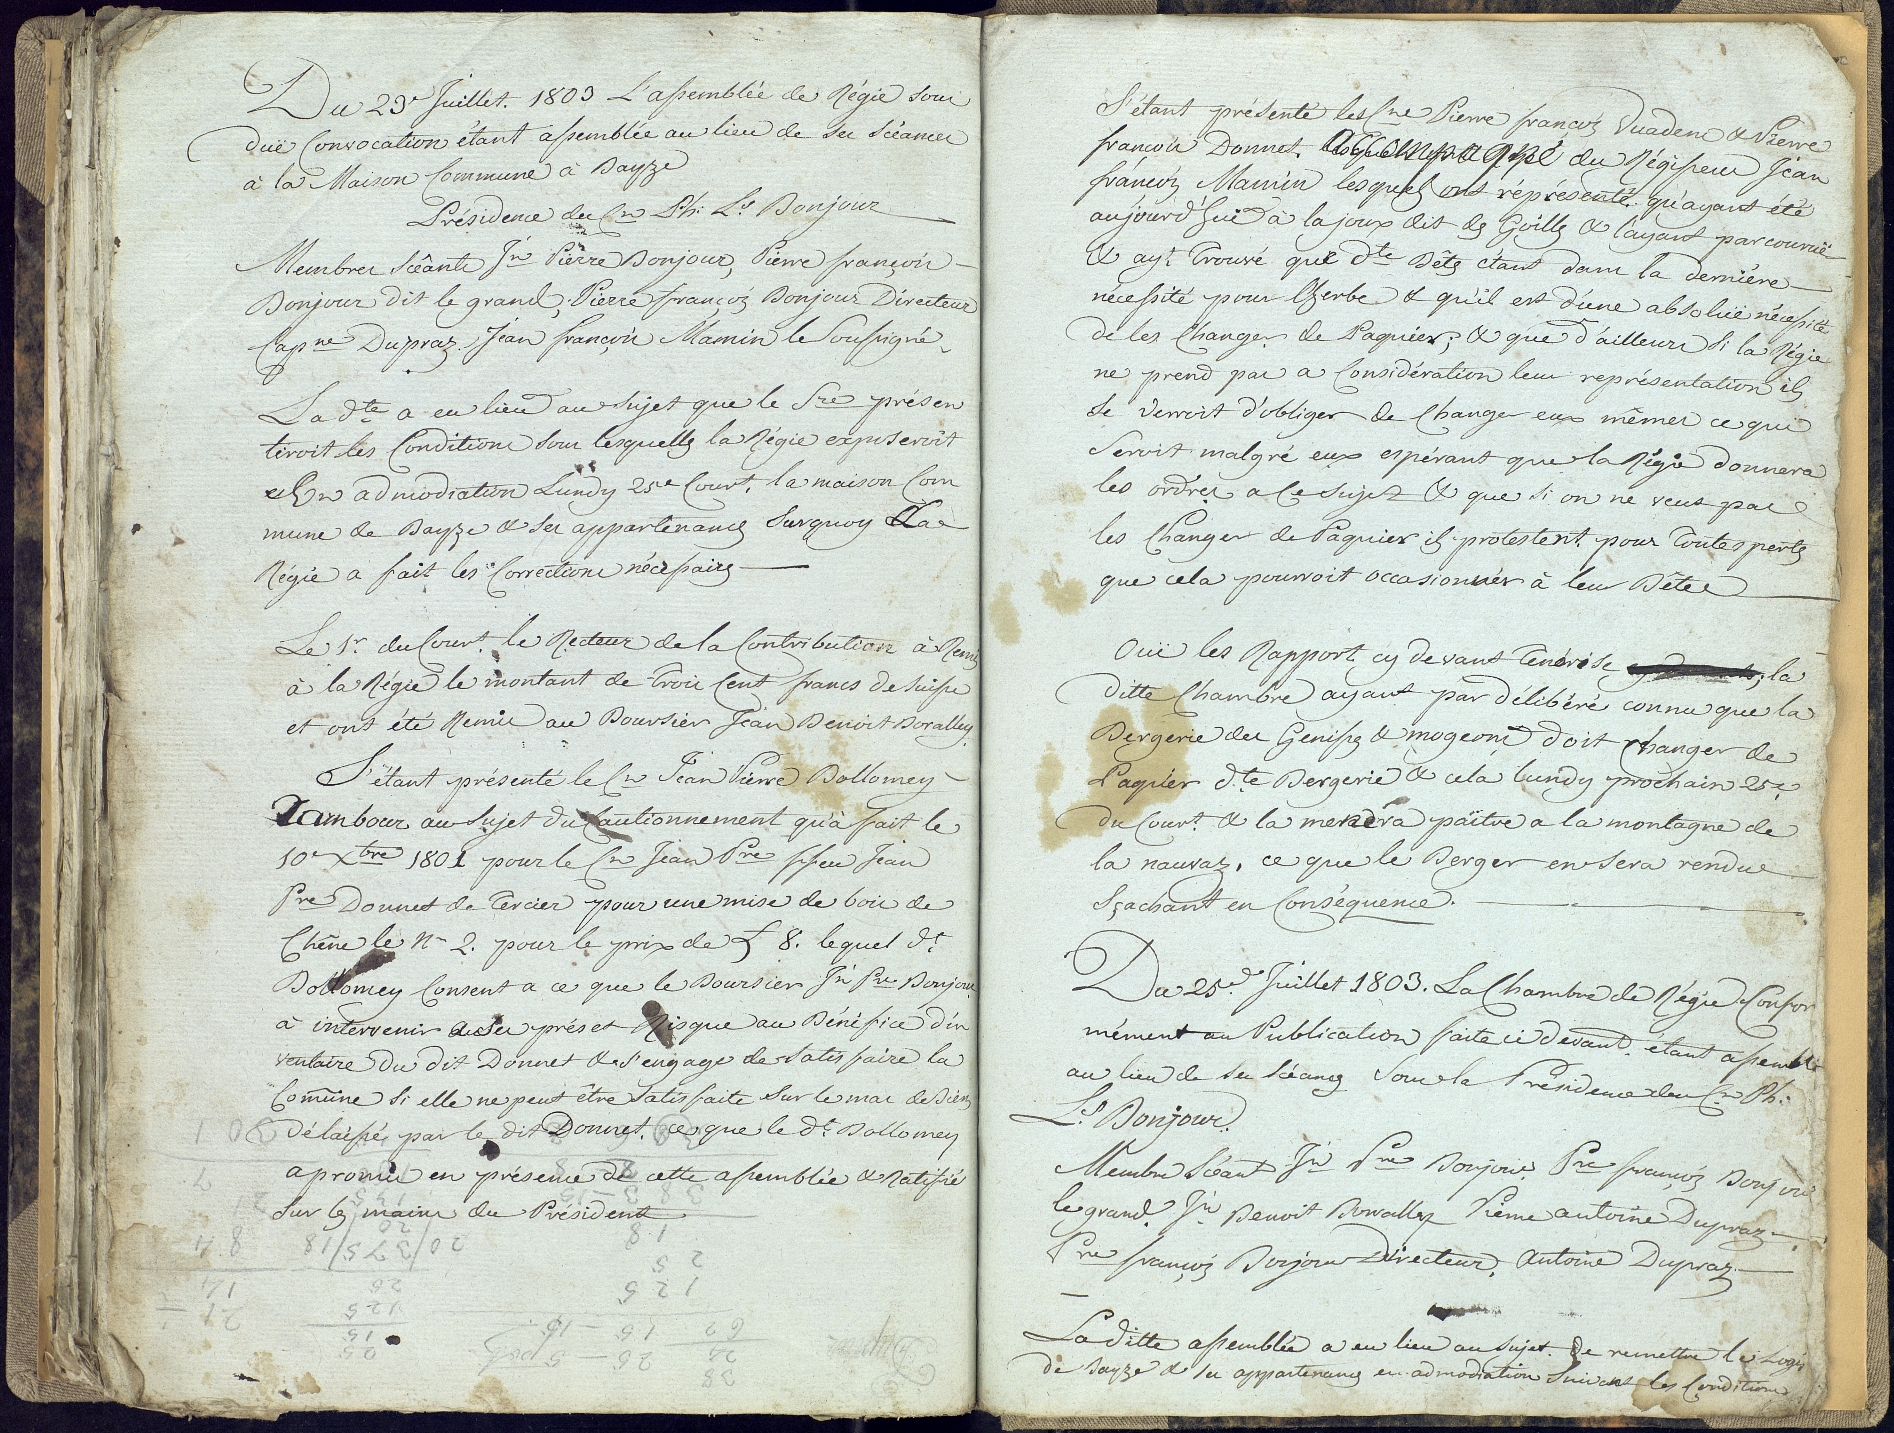 Du 23e Juillet. 1803 L'assemblée de Régie sous
duë Convocation étant assemblée au lieu de ses Scéances
à la Maison Commune à Bayze
Présidence du Cn Ph: Ls Bonjour
Membres Scéants Jn Pierre Bonjour, Pierre françois
Bonjour dit le grand, Pierre françois Bonjour Directeur
Capne Dupraz. Jean françois Mamin le Soussigné.
La dte a eu lieu au sujet que le Sre présen
teroit les Conditions sous lesquelles la Régie exposeroit
en admodiation Lundy 25e Court. la maison Com
mune de Bayze & ses appartenances Surquoy La
Régie a fait les Corrections nécessaires
Le 1r. du Court. le Recteur de la Contribution à Remis
à la Régie le montant de Trois Cent francs de Suisse
et ont été Remis au Boursier Jean Benoit Boralley.
S'étant présenté le Cn Jean Pierre Bollomey
Tambour au Sujet du Cautionnement qu'à fait le
10e Xbre 1801 pour le Cn Jean Pre ffeu Jean
Pre Donnet de Tercier pour une mise de bois de
Chêne le No 2. pour le prix de £ 8. lequel dt.
Bollomey Consent a ce que le Boursier Jn Pre Bonjour
à intervenir à ses prés et Risque au Bénéfice d'in
ventaire du dit Donnet & s'engage de Satisfaire la
Comune Si elle ne peut être Satisfaite Sur le mas de Biens
délaissés par le dit Donnet. ce que le dt Bollomey
a promis en présence de cette assemblée & Ratifié
Sur les mains du Président
S'étant présenté les Cns Pierre françois Vuadens & Pierre
françois Donnet. du Régisseur Jean
françois Mamin lesquels ont réprésentés qu'ayant été
aujourd'hui à la joux dit des Goilles & l'ayant parcouruë
& ayt. Trouvé que dte Bêtes étant dans la dernière
nécessité pour l'herbe & qu'il est d'une absoluë nécessité
de les Changer de Paquier; & que d'ailleurs Si la Régie
ne prend pas a Considération leur représentation ils
Se verroit d'obliger de Changer eux mêmes ce qui
Seroit malgré eux espérant que la Régie donnera
les ordres a Ce Sujet & que Si on ne veut pas
les Changer de Paquier ils protestent pour Toutes pertes
que cela pourroit occasionner à leur Bêtes
Ouï les Rapport cy devant Tenorisé; la
ditte Chambre ayant par délibéré connu que la
Bergerie des Genisses & mogeons doit changer de
Paquier dte Bergerie & cela Lundy prochain 25e
du Court. & la menera paître a la montagne de
la nauvaz. ce que le Berger en Sera rendu
Sçachant en Conséquence.
Du 25e. Juillet 1803. La Chambre de Régie Confor
mément au Publication faite ci devant. étant assemblé
au lieu de ses Scéances Sous la Présidence du Cn Ph:
Ls Bonjour.
Membre Scéant Jn Pre Bonjour Pre françois Bonjour
le grand. Jn Benoit Borralley Pierre antoine Dupraz
Pre françois Bonjour Directeur. Antoine Dupraz
La ditte assemblée a eu lieu au Sujet de remettre le Logis
de Bayze & ses appartenances en admodiation Suivant les Conditions